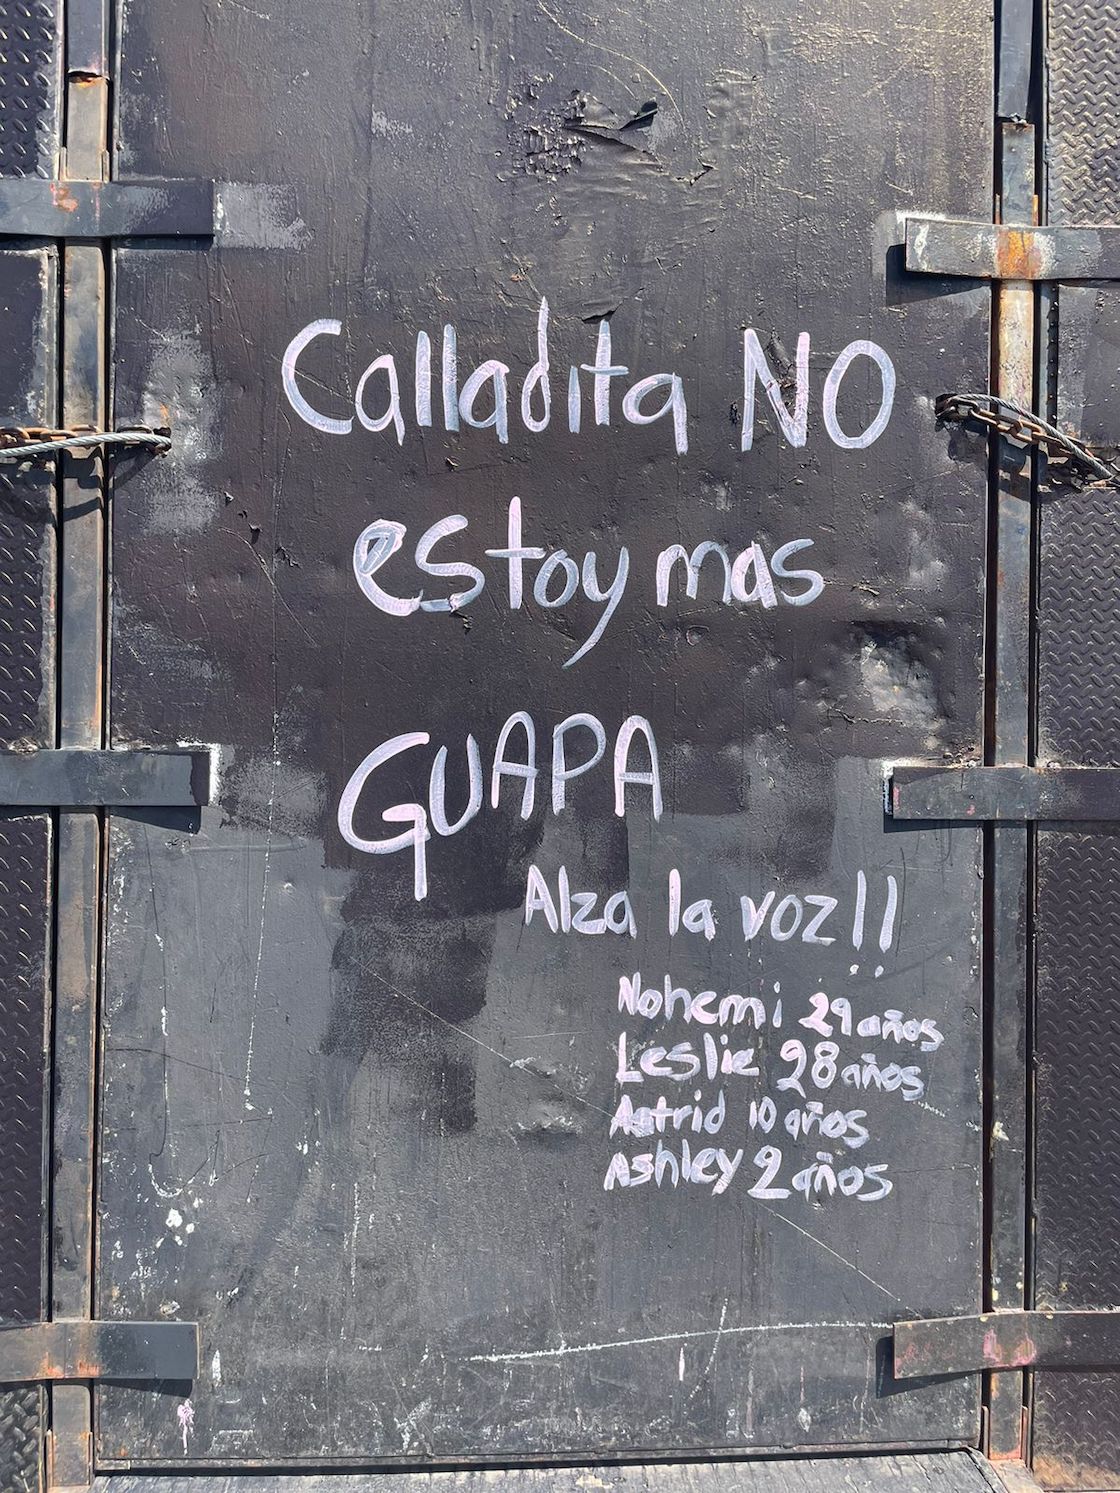 Calladita NO
estoy mas
GUAPA
Alza la voz!!
Nohemi 29 años
Leslie 28 años
Astrid 10 años
Ashley 2 años